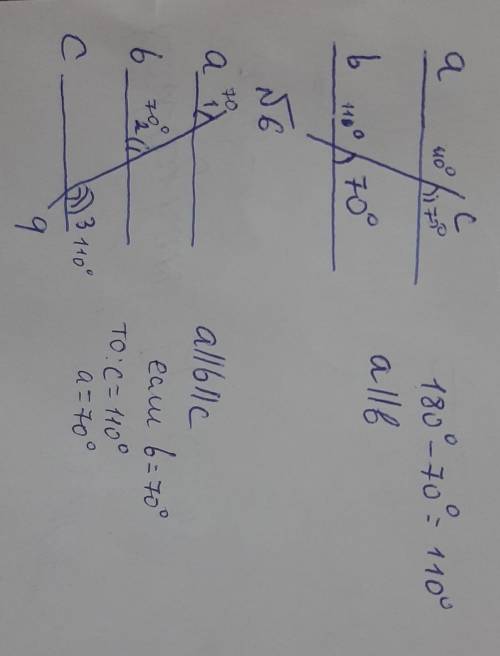 a 110° 70° c
b 110° 70°
180° - 70° = 110°
a || b
№6
a 70 1
b 70° 2
c 3 110°
q
a||b||c
если b=70°
то: c=110°
a=70°